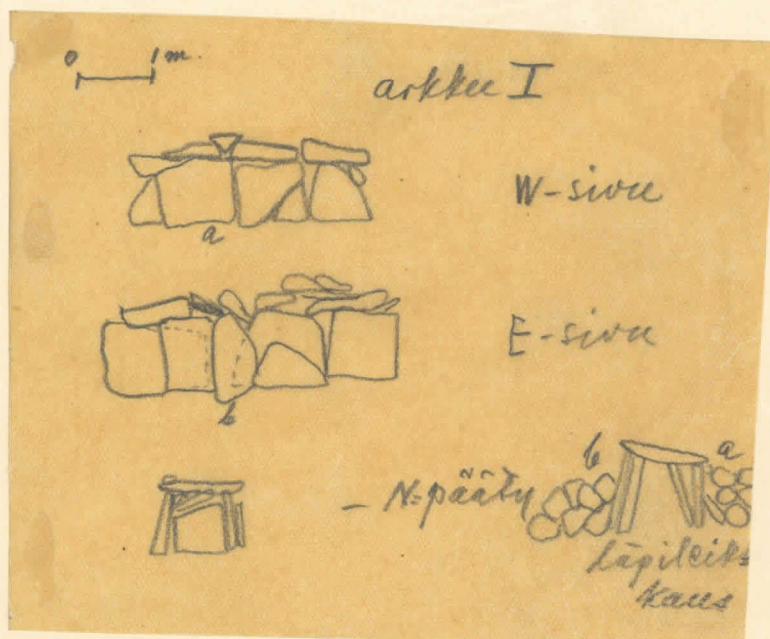 0 1 m.
arkku I
W-sivu
a
E-sivu
b
- N-pääty
b a
Läpileik-
kaus